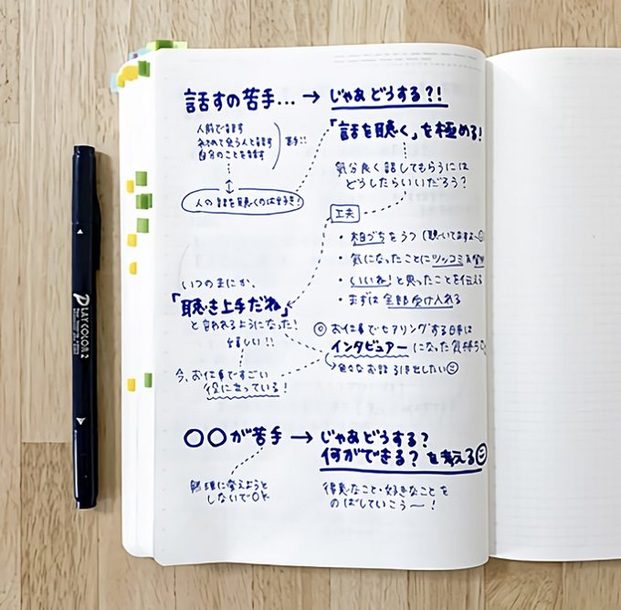 話すの苦手… → じゃあどうする?!
人前で話す
初めて会う人と話す
自分のことを話す
苦手::
「話を聴く」を極める!
人の話を聴くのは好き!
気分良く話してもらうには
どうしたらいいだろう?
工夫
・相づちをうつ(聴いてますよ
・気になったことにツッコミ
・いいね!と思ったことを伝える
・まずは全部受け入れる
いつのまにか、
「聴き上手だね」
と言われるようになった!
嬉しい!!
お仕事でヒアリングする時は
インタビュアーになった気持ち
色々なお話引き出したい
今、お仕事ですごい
役に立っている!
○○が苦手 → じゃあどうする?
何ができる?を考える
無理に変えようと
しないでOK
得意なこと・好きなことを
のばしていこう〜!
PLAYCOLOR2